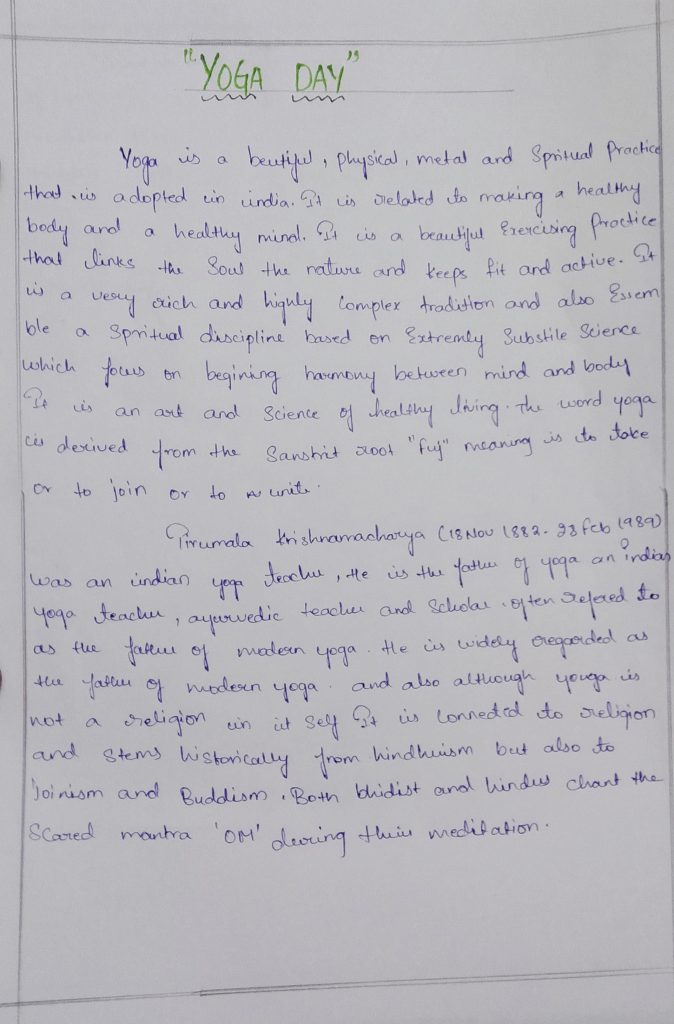 "YOGA DAY"
Yoga is a beutiful, physical, metal and Spritual Practice
that is adopted in india. It is related to making a healthy
body and a healthy mind. It is a beautiful Exercising Practice
that links the Soul the nature and keeps fit and active. It
is a very rich and highly Complex tradition and also Essem
ble a Spritual discipline based on Extremly Substile Science
which focus on begining harmony between mind and body
It is an art and Science of healthy living. The word yoga
is derived from the Sanskrit root "Yuj" meaning is to take
or to join or to unite.
Tirumala Krishnamacharya (18 Nov 1882. 28 feb 1989)
was an indian yoga teacher, He is the father of yoga an indian
yoga teacher, ayurvedic teacher and Scholar. often refered to
as the father of modern yoga. He is widely regarded as
the father of modern yoga. and also although youga is
not a religion in it self It is Connected to religion
and Stems historically from hindhuism but also to
Joinism and Buddism. Both bhidist and hindus chant the
Scared mantra 'OM' during their meditation.